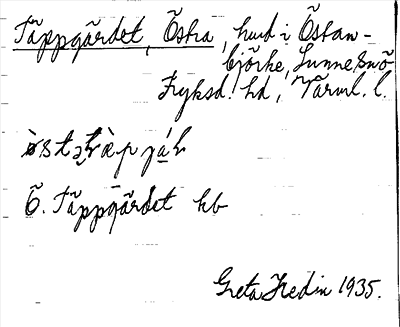 Täppgärdet, Östra, hmd i Östan-
björke, Lunne, snö
Fryksd. hd, Värml. l.
Ö. Täppgärdet hb
Greta Hedin 1935.